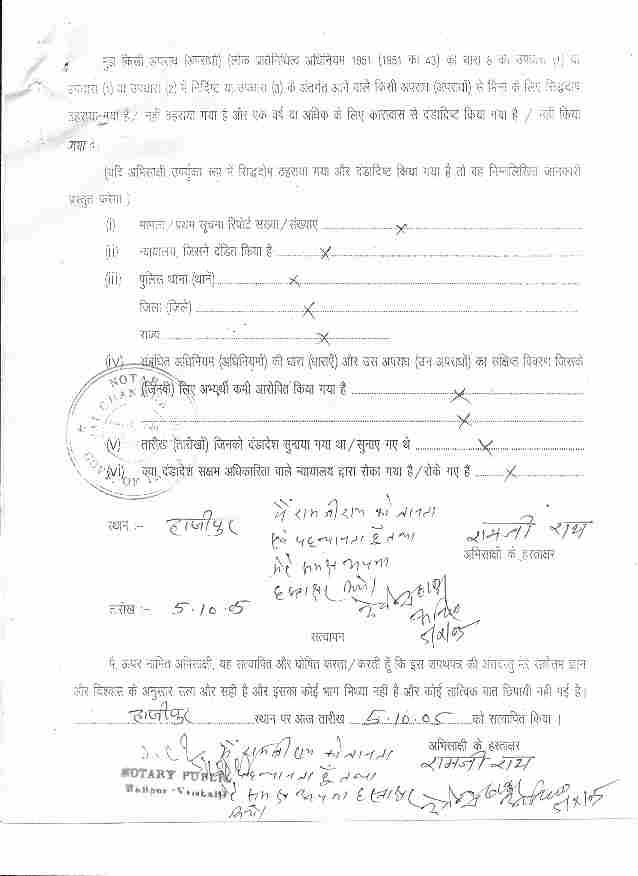 मुझे किसी अपराध (अपराधों) (लोक प्रतिनिधित्व अधिनियम 1951 (1951 का 43) की धारा 8 की उपधारा (1) या
उपधारा (1) या उपधारा (2) में निर्दिष्ट या उपधारा (3) के अंतर्गत आने वाले किसी अपराध (अपराधों) से भिन्न के लिए सिद्धदोष
ठहराया गया है / नहीं ठहराया गया है और एक वर्ष या अधिक के लिए कारावास से दंडादिष्ट किया गया है / नहीं किया
गया है
(यदि अभिसाक्षी उपर्युक्त रूप में सिद्धदोष ठहराया गया और दंडादिष्ट किया गया है तो वह निम्नलिखित जानकारी
प्रस्तुत करेगा )
(i) मामला / प्रथम सूचना रिपोर्ट संख्या / संख्याएं X
(ii) न्यायालय, जिसने दंडित किया है X
(iii) पुलिस थाना (थाने) X
जिला (जिले) X
राज्य X
(iv) संबंधित अधिनियम (अधिनियमों) की धारा (धाराएँ) और उस अपराध (उन अपराधों) का संक्षिप्त विवरण जिसके
(जिनके) लिए अभ्यर्थी कभी आरोपित किया गया है X
X
(V) तारीख (तारीखों) जिनको दंडादेश सुनाया गया था / सुनाए गए थे X
(vi) क्या दंडादेश सक्षम अधिकारिता वाले न्यायालय द्वारा रोका गया है / रोके गए हैं X
NOTARY
मैं रामजी राय को जानता
स्थान :- हाजीपुर
एवं पहचानता हूँ तथा
रामजी राय
मेरे समक्ष अपना
अभिसाक्षी के हस्ताक्षर
हस्ताक्षर किये।
तारीख :- 5.10.05
सत्यापन
मैं, ऊपर नामित अभिसाक्षी, यह सत्यापित और घोषित करता / करती हूँ कि इस शपथपत्र की अंतर्वस्तु मेरे सर्वोत्तम ज्ञान
और विश्वास के अनुसार सत्य और सही है और इसका कोई भाग मिथ्या नहीं है और कोई तात्विक बात छिपायी नहीं गई है।
हाजीपुर स्थान पर आज तारीख 5.10.05 को सत्यापित किया ।
अभिसाक्षी के हस्ताक्षर
मैं रामजी राय को जानता
रामजी राय
NOTARY PUBLIC
पहचानता हूँ तथा
Hajipur
मेरे समक्ष अपना हस्ताक्षर
किये।